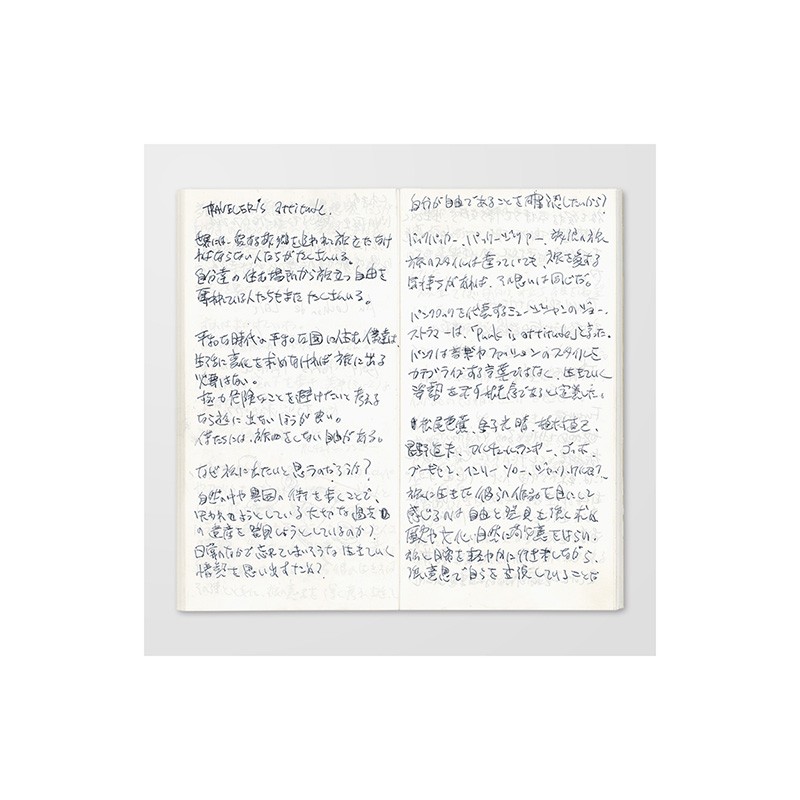 TRAVELER'S attitude.
世界には、愛する故郷を追われ旅立たなけ
ればならない人たちがたくさんいる。
自分達の住む場所から旅立つ自由を
奪われている人たちもまた たくさんいる。
平和な時代の平和な国に住む僕達は、
生活に変化を求めなければ旅に出る
必要はない。
極力危険なことを避けたいと考える
なら旅に出ないほうが良い。
僕たちには、旅をしない自由がある。
なぜ旅に出たいと思うのだろうか?
自然の中や異国の街を歩くことで、
失われようとしている大切な過去
の遺産を発見しようとしているのか?
日常のなかで忘れてしまいそうな 生きていく
情熱を思い出すためか?
自分が自由であることを確認したいから?
バックパッカー、バッグ
旅のスタイルは違っていても、旅を愛する
気持ちがあれば、その思いは同じだ。
パンクロックを代表するミュージシャンのジョー・
ストラマーは、「Punk is attitude」と言った。
パンクは音楽やファッションのスタイルを
カテゴライズする言葉ではなく、生きていく
姿勢を示す言葉であると定義した。
松尾芭蕉、金子光晴、植村直己、
星野道夫、アルチュール・ランボー、ゴッホ、
ゴーギャン、ヘンリー・ソロー、ジャック・ケルアック。
旅に生きた彼らの作品を目にして
感じるのは自由と発見を強く求め
歴史や文化、自然に敬意をはらい、
旅と日常を軽やかに行き来しながら、
強い意思で自らを表現していることだ